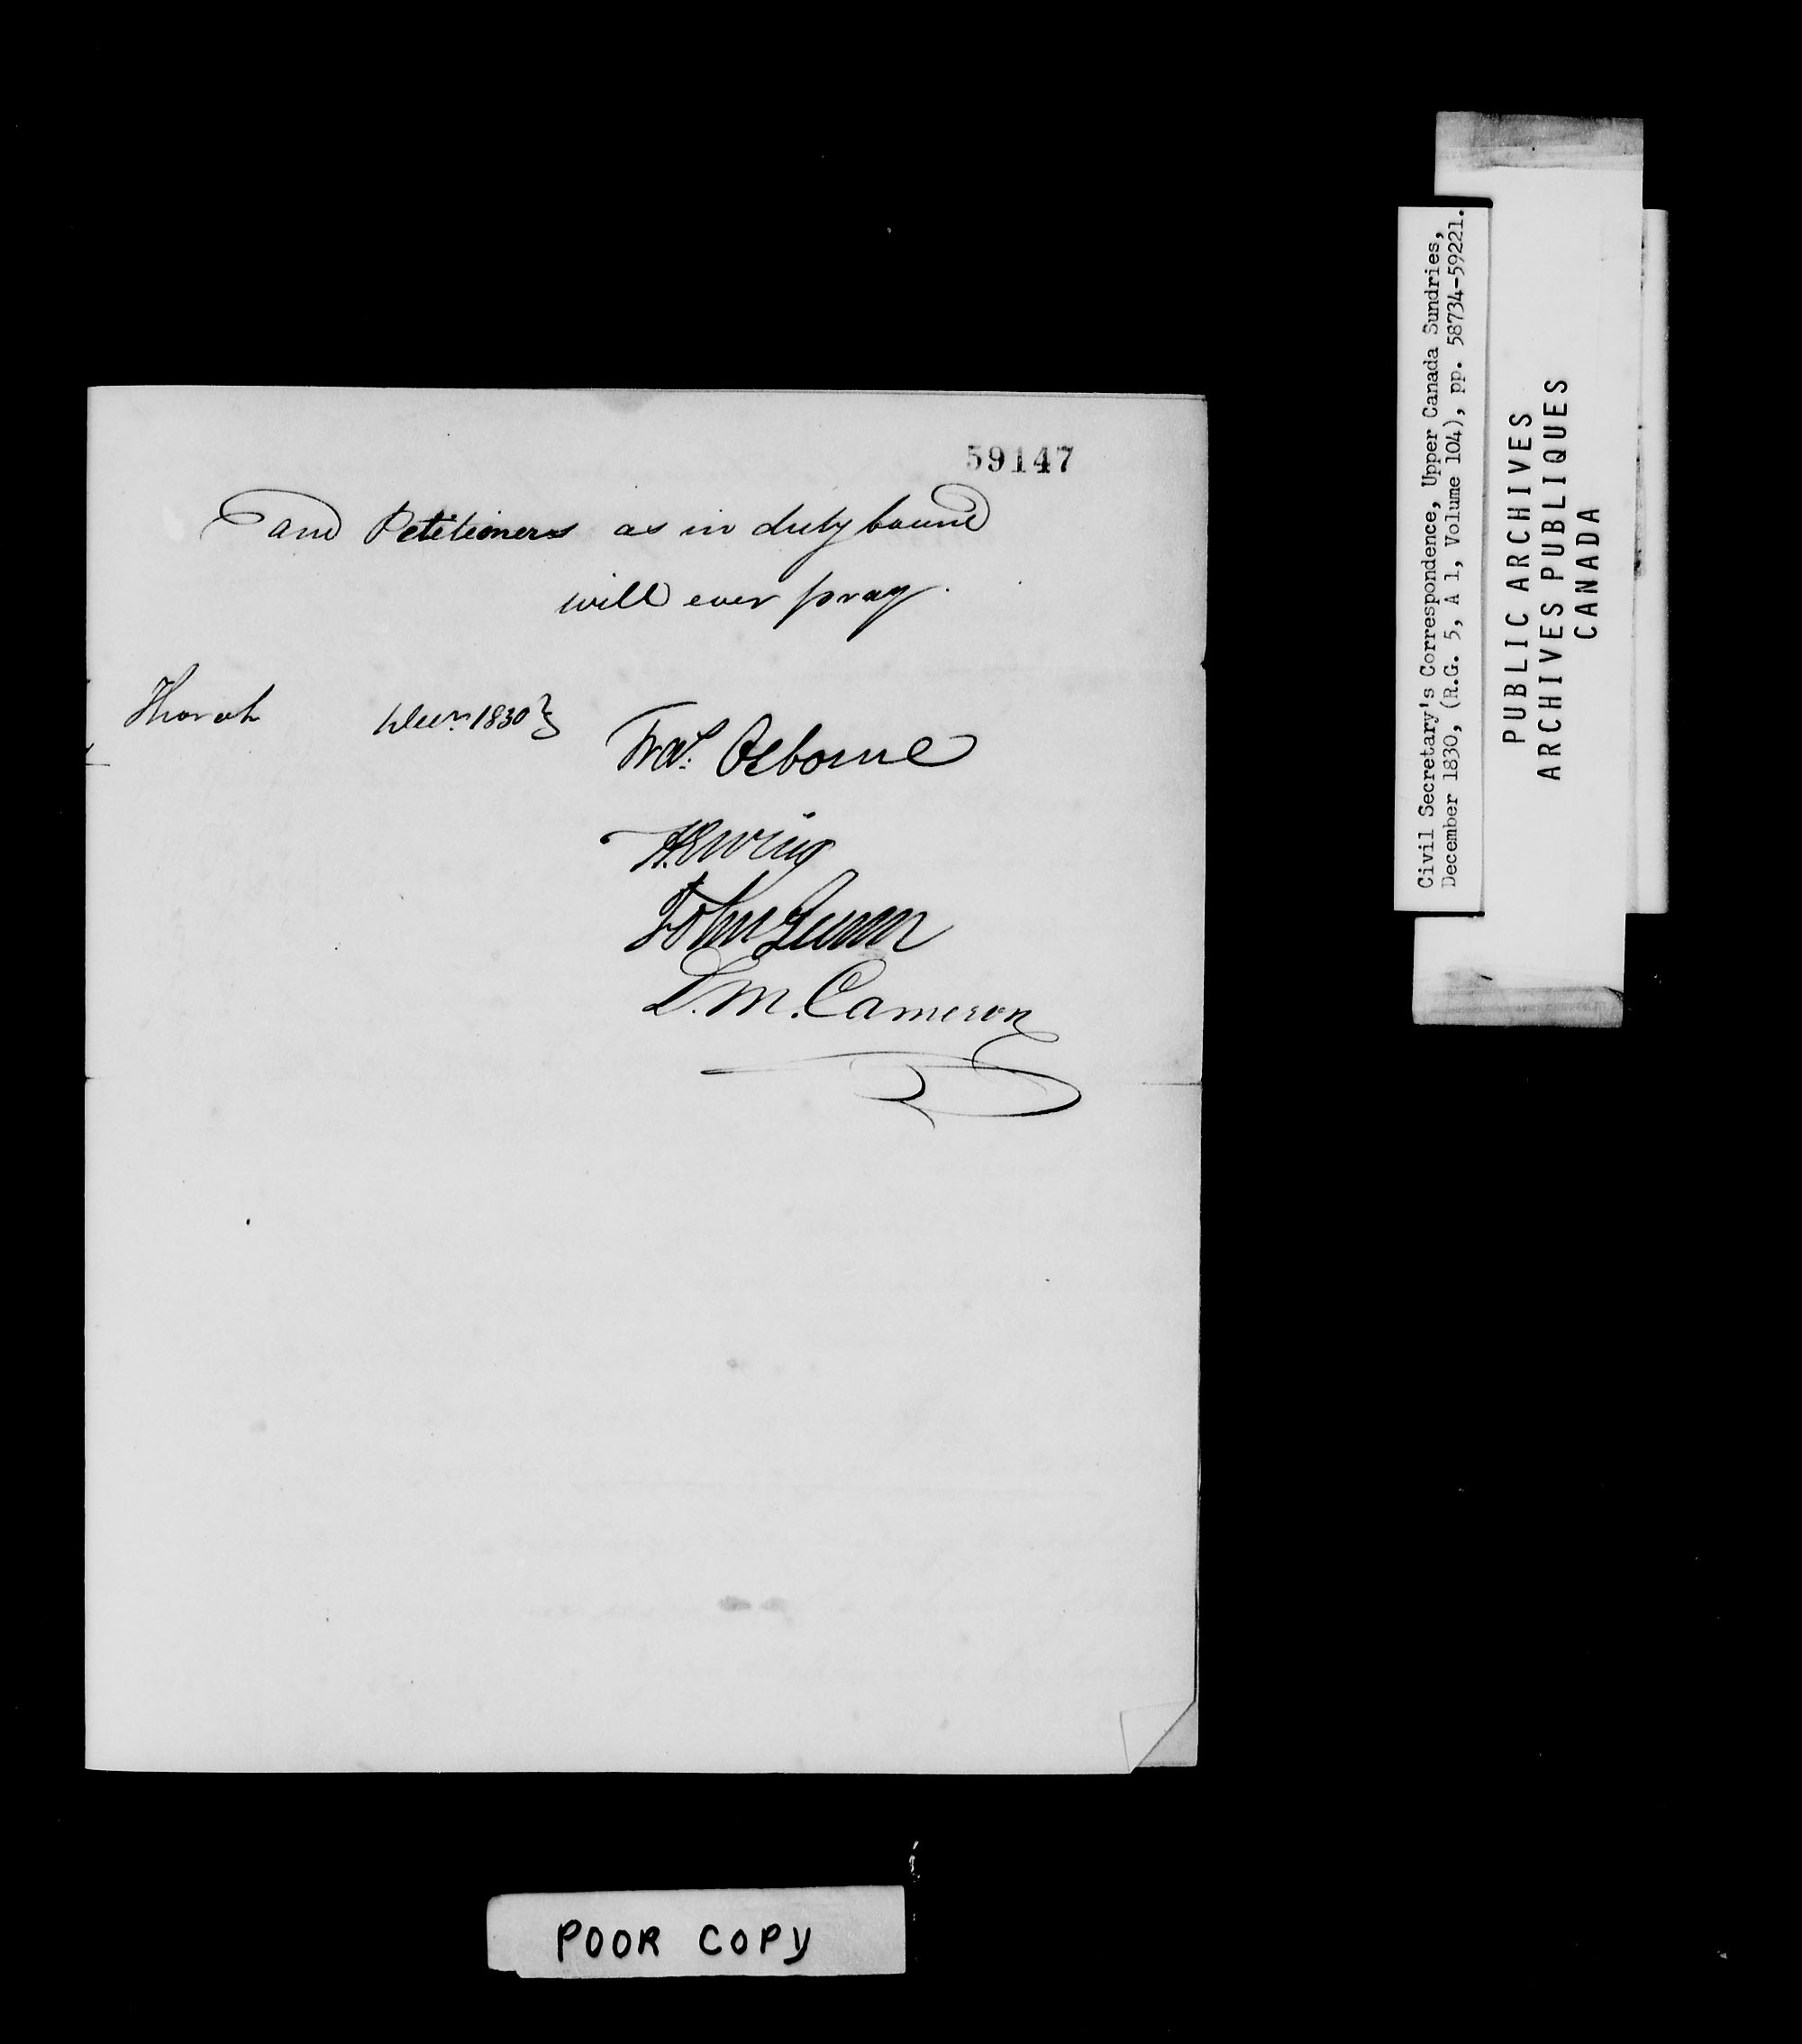 59147
and Petitioners as in duty bound
will ever pray.
Thorah Decr. 1830
Fras. Osborne
H. Ewing
John Gunn
D. M. Cameron
POOR COPY
Civil Secretary's Correspondence, Upper Canada Sundries,
December 1830, (R.G. 5, A 1, Volume 104), pp. 58734-59221.
PUBLIC ARCHIVES
ARCHIVES PUBLIQUES
CANADA